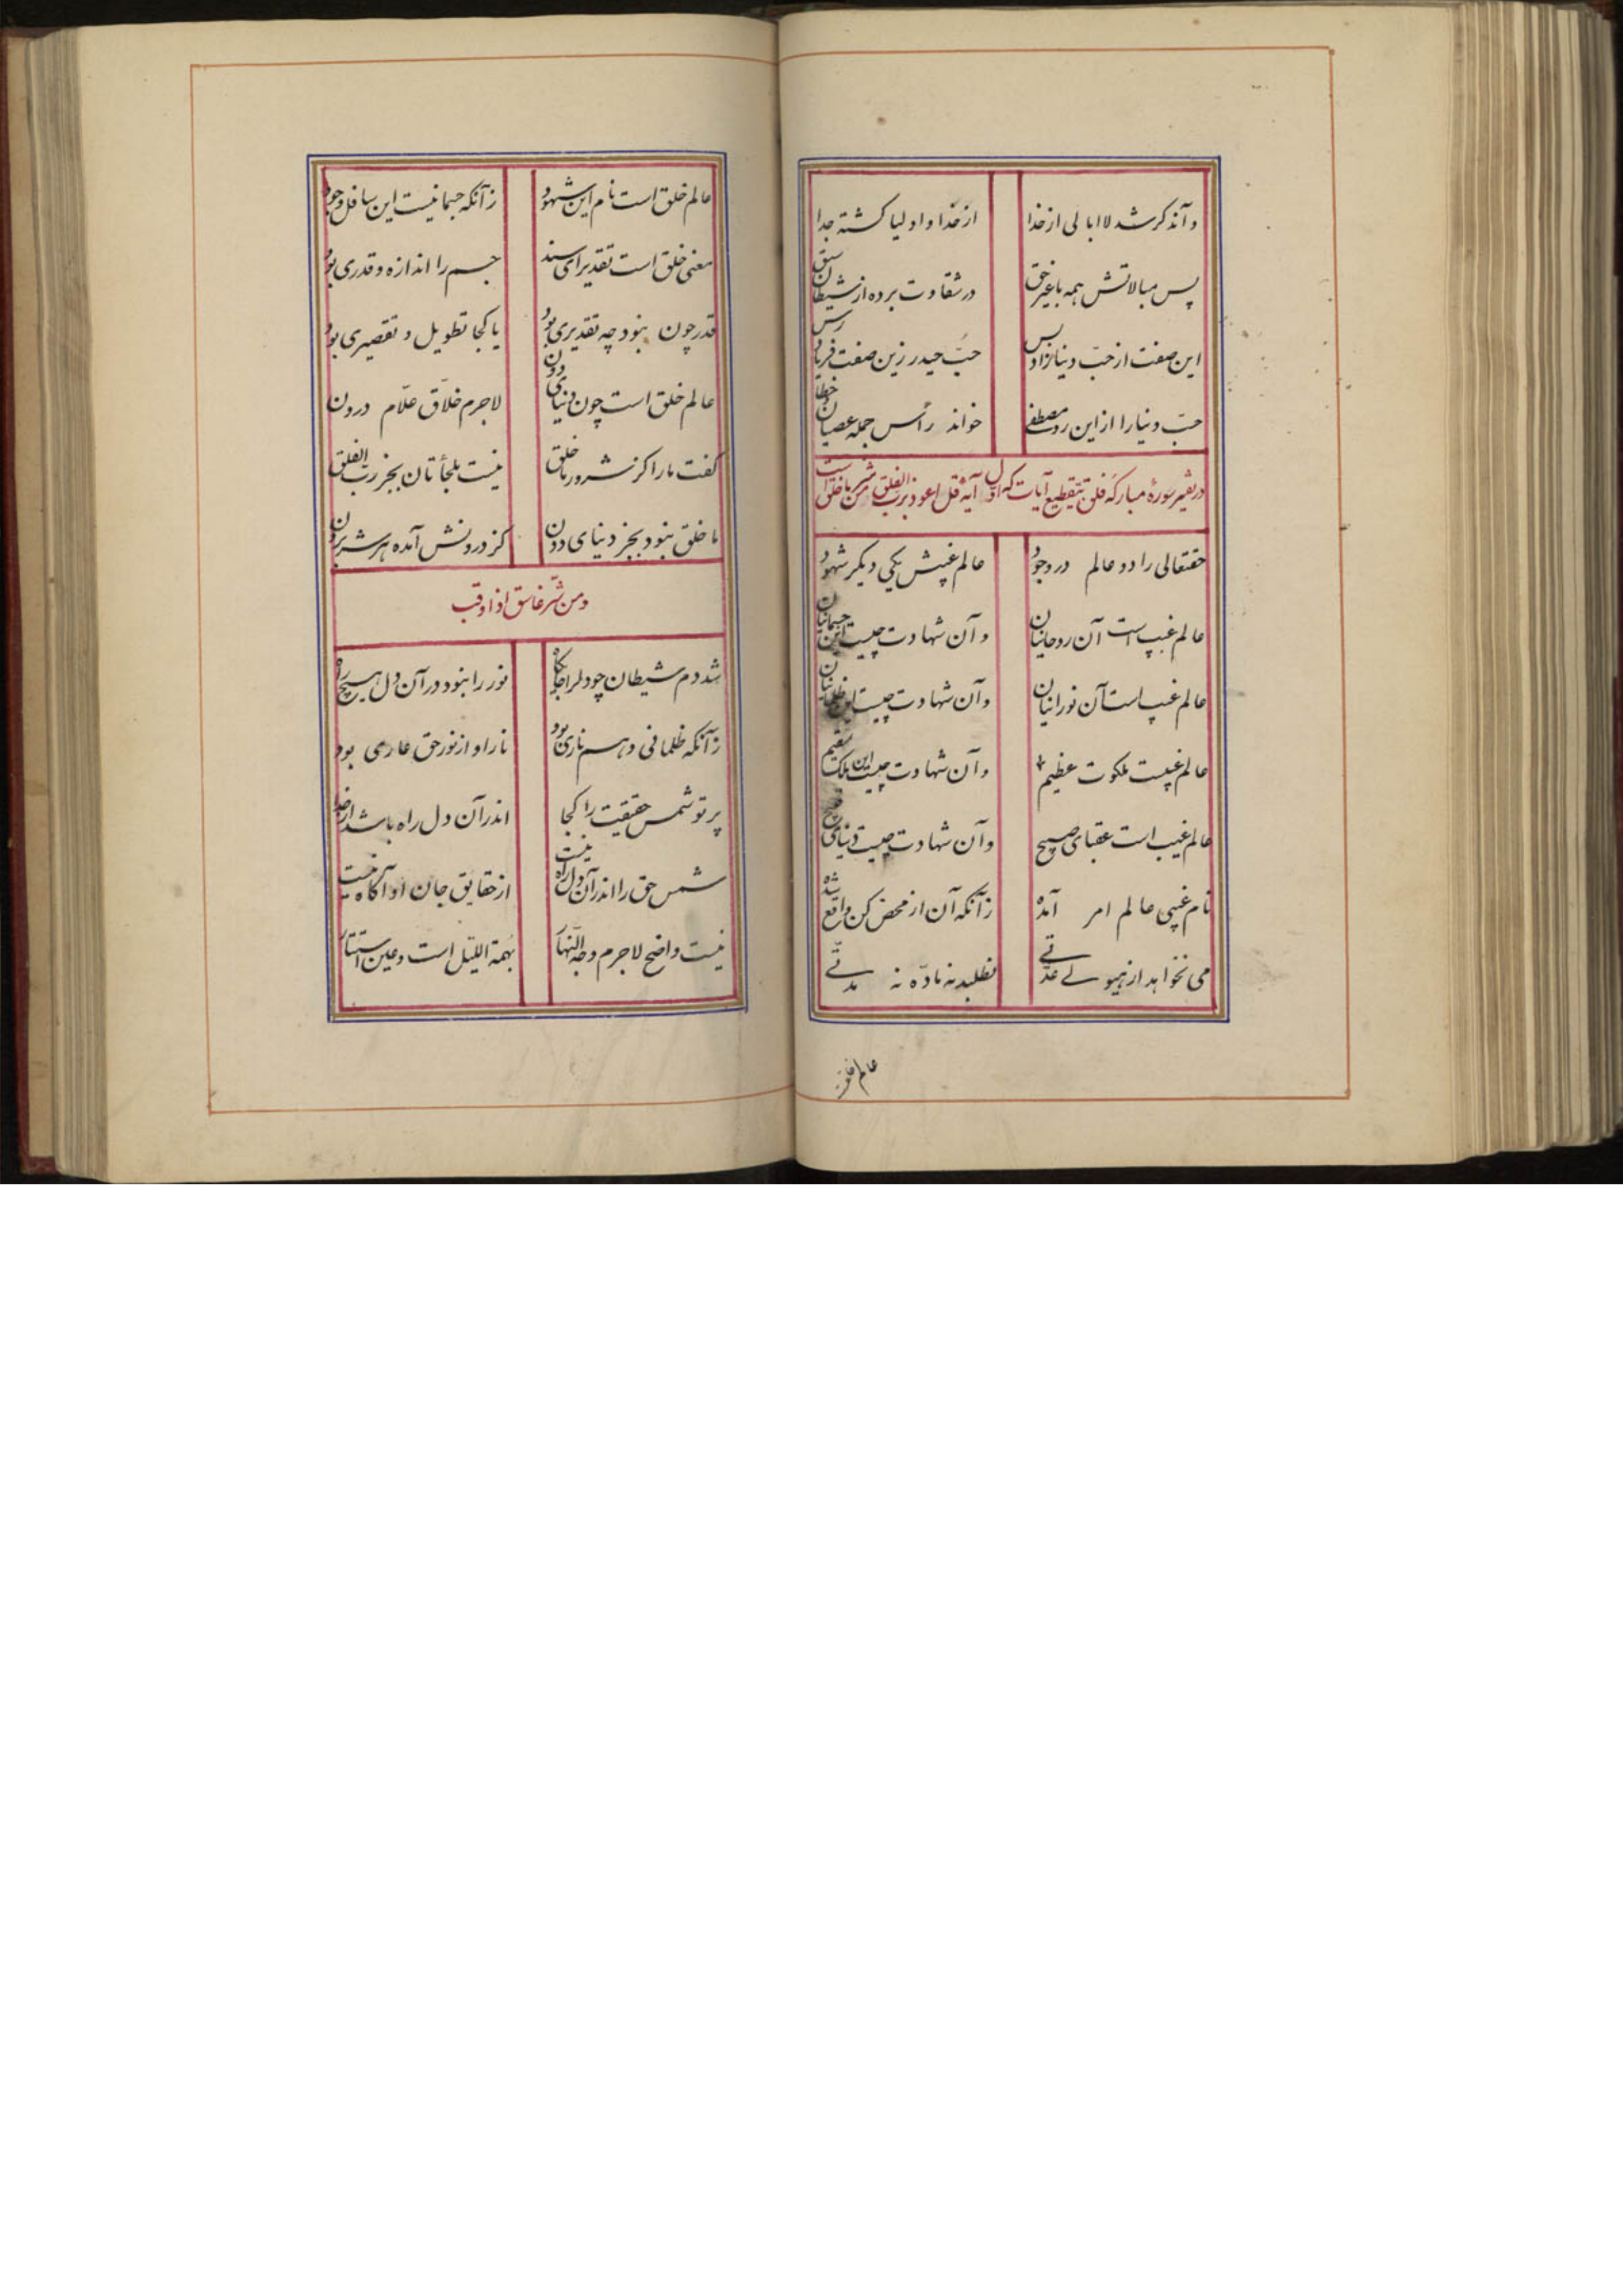 وآنذکر شد لاابالی از خدا از خدا و اولیا کشته جدا
پس مبالاتش همه با غیر حق در شقاوت برده از شیطان سبق
این صفت از حبّ دنیا زاد و بس حبّ حیدر زین صفت فریاد رس
حبّ دنیا را از این رو مصطفی خواند رأس جمله عصیان و خطا
در تفسیر سورهٔ مبارکه فلق بتقطیع آیات که اول آیهٔ قل اعوذ برب الفلق من شر ما خلق است
حقتعالی را دو عالم در وجود عالم غیبش یکی دیکر شهود
عالم غیب است آن روحانیان و آن شهادت چیست این جسمانیان
عالم غیب است آن نورانیان و آن شهادت چیست این ظلمانیان
عالم غیبست ملکوت عظیم و آن شهادت چیست این ملک سقیم
عالم غیب است عقبای صبیح و آن شهادت چیست دنیای قبیح
نام غیبی عالم امر آمده زآنکه آن از محض کن واقع شده
می نخواهد از هیولے عدّتے نطلبد نه مادّه نه مدّتے
عالم خلقست
عالم خلق است نام این شهود زآنکه جسمانیست این سافل وجود
معنی خلق است تقدیر ای سند جسم را اندازه و قدری بود
قدر چون نبود چه تقدیری بود یا کجا تطویل و تقصیری بود
عالم خلق است چون دنیای دون لاجرم خلّاق علّام درون
کفت ما را کز شرور ما خلق نیست ملجأتان بجز ربّ الفلق
ما خلق نبود بجز دنیای دون کز درونش آمده هر شر برون
ومن شرّ غاسق اذا وقب
شد دم شیطان چو دلرا جایکاه نور را نبود در آن دل هیچ راه
زآنکه ظلمانی و هم ناری بود نار او از نور حق عاری بود
پرتو شمس حقیقت را کجا اندر آن دل راه باشد از ضیا
شمس حق را اندر آن دل راه نیست از حقایق جان او آکاه نیست
نیست واضح لاجرم وجه النّهار بُهمة اللیل است و عین استتار